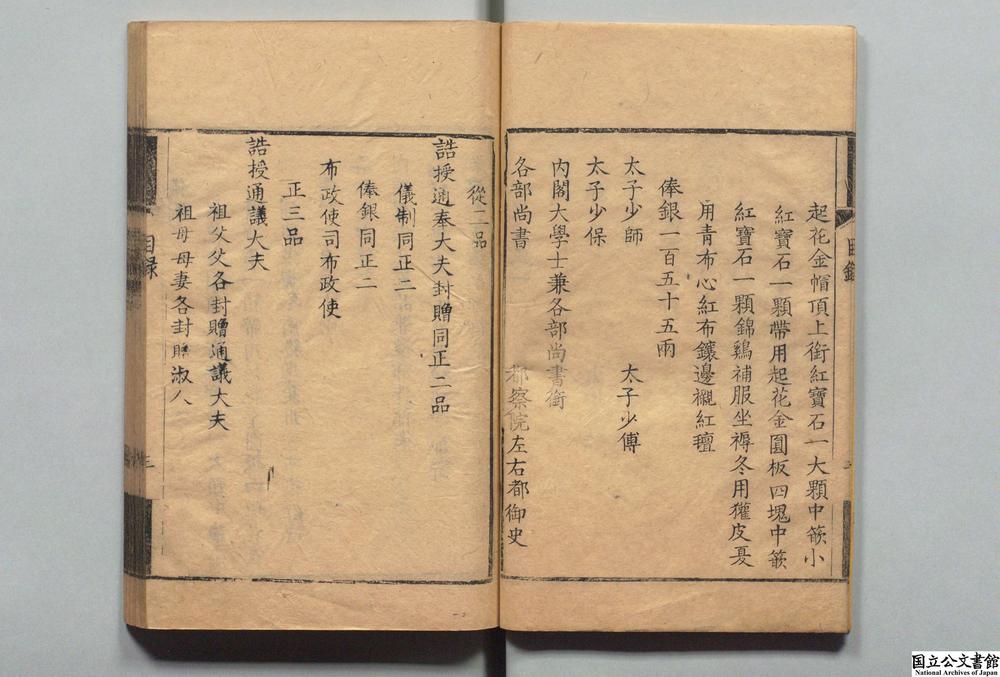 起花金帽頂上銜紅寶石一大顆中嵌小
紅寶石一顆帶用起花金圓板四塊中嵌
紅寶石一顆錦鷄補服坐褥冬用獾皮夏
用青布心紅布鑲邊襯紅氊
俸銀一百五十五兩
太子少師 太子少傅
太子少保
內閣大學士兼各部尚書銜
各部尚書 都察院左右都御史
從二品
誥授通奉大夫封贈同正二品
儀制同正二
俸銀同正二
布政使司布政使
正三品
誥授通議大夫
祖父父各封贈通議大夫
祖母母妻各封贈淑人
目録
国立公文書館
National Archives of Japan